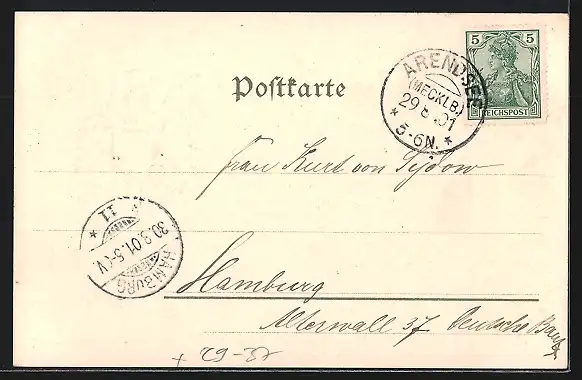 5 5
REICHSPOST
ARENDSEE
(MECKLB.)
29 8 01
* 5-6N. *
Postkarte
Frau Kurt von Sydow
* 11
30.8.01.5-6V.
HAMBURG
Hamburg
Alterwall 37 Deutsche Bank